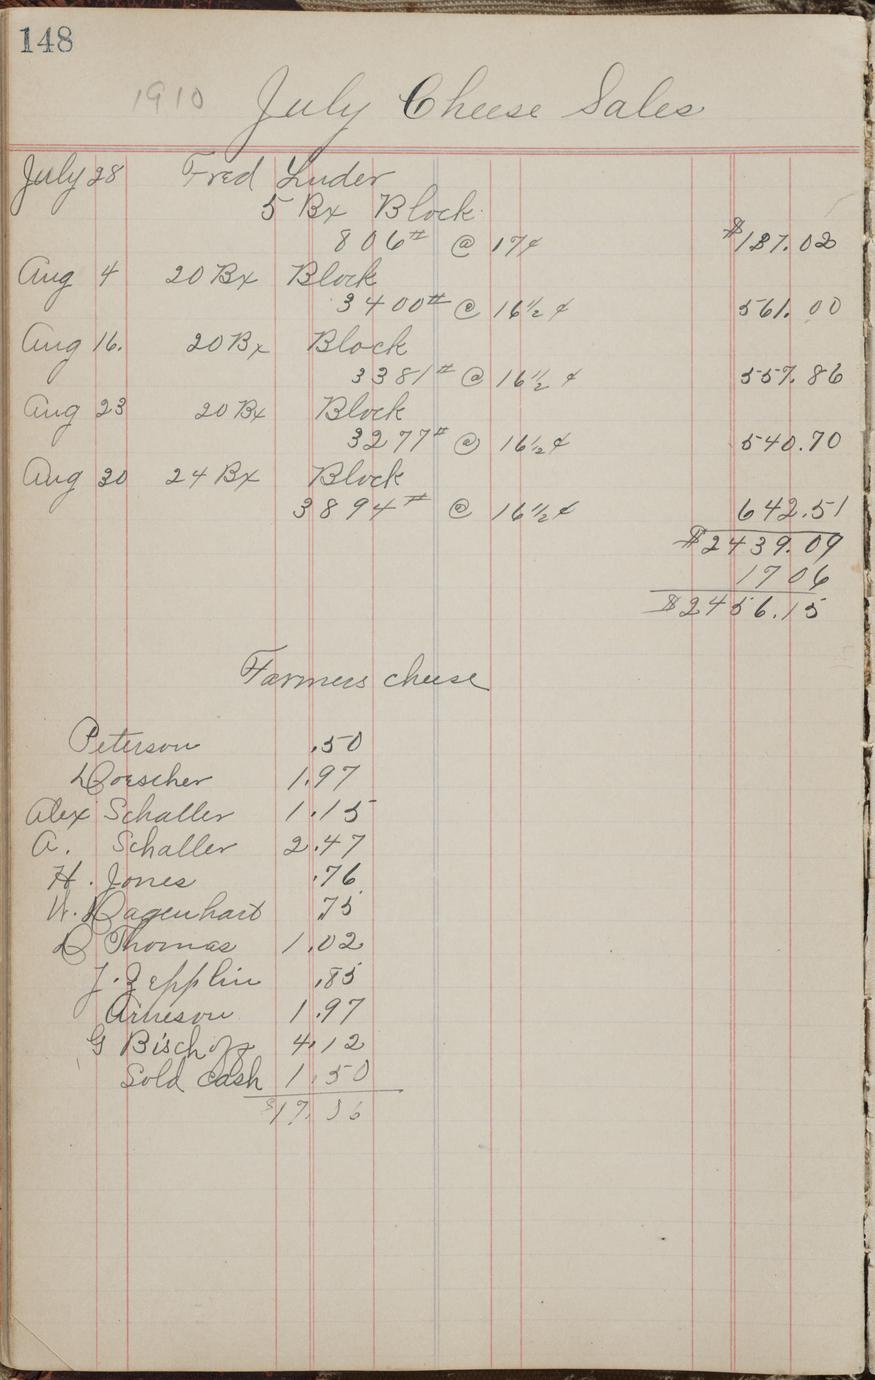 148
1910 July Cheese Sales
July 28 Fred Luder
5 Bx Block
806# @ 17¢ $137.02
Aug 4 20 Bx Block
3400# @ 16½ ¢ 561.00
Aug 16. 20 Bx Block
3381# @ 16½ ¢ 557.86
Aug 23 20 Bx Block
3277# @ 16½¢ 540.70
Aug 30 24 Bx Block
3894# @ 16½¢ 642.51
$2439.09
1706
$2456.15
Farmers cheese
Peterson .50
Doescher 1.97
Alex Schaller 1.15
A. Schaller 2.47
H. Jones .76
W. Dagenhart .75
D Thomas 1.02
J. Zepplin .85
Arneson 1.97
G Bischoff 4.12
Sold cash 1.50
$17.06